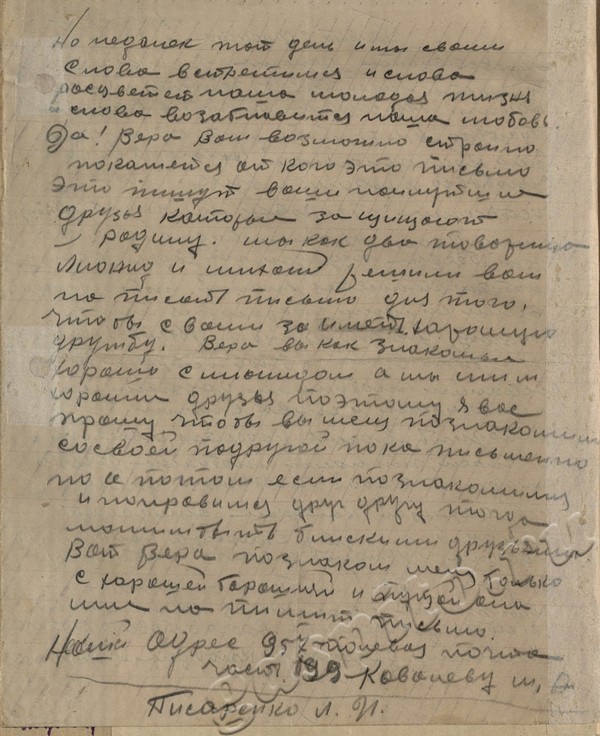 Но недалек тот день и мы с вами
Слова встретимся и слова
расцветет наша молодая жизнь
и слова возглавится наша любовь.
Да! Вера Вам возможно странно
покажется от кого это письмо
Это пишут ваши
друзья каторы защищают
родину. мы как два товарища
и михаил решили вам
написать письмо для того,
чтобы с вами заиметь харошую
дружбу. Вера вы как знакомы
хорошо с а мы с ним
хорошие друзья поэтому я вас
прошу чтобы вы меня познакомили
со своей подругой пока письменно
но а потом если познакомимся
и понравимся друг другу тогда
можим быть близкими друзьями
Вот Вера познаком меня только
с харошей и пускай она
мне напишит письмо.
Наш Адрес 957 полевая почта
часть 199 Ковалеву м. А
Писаренко Л. И.